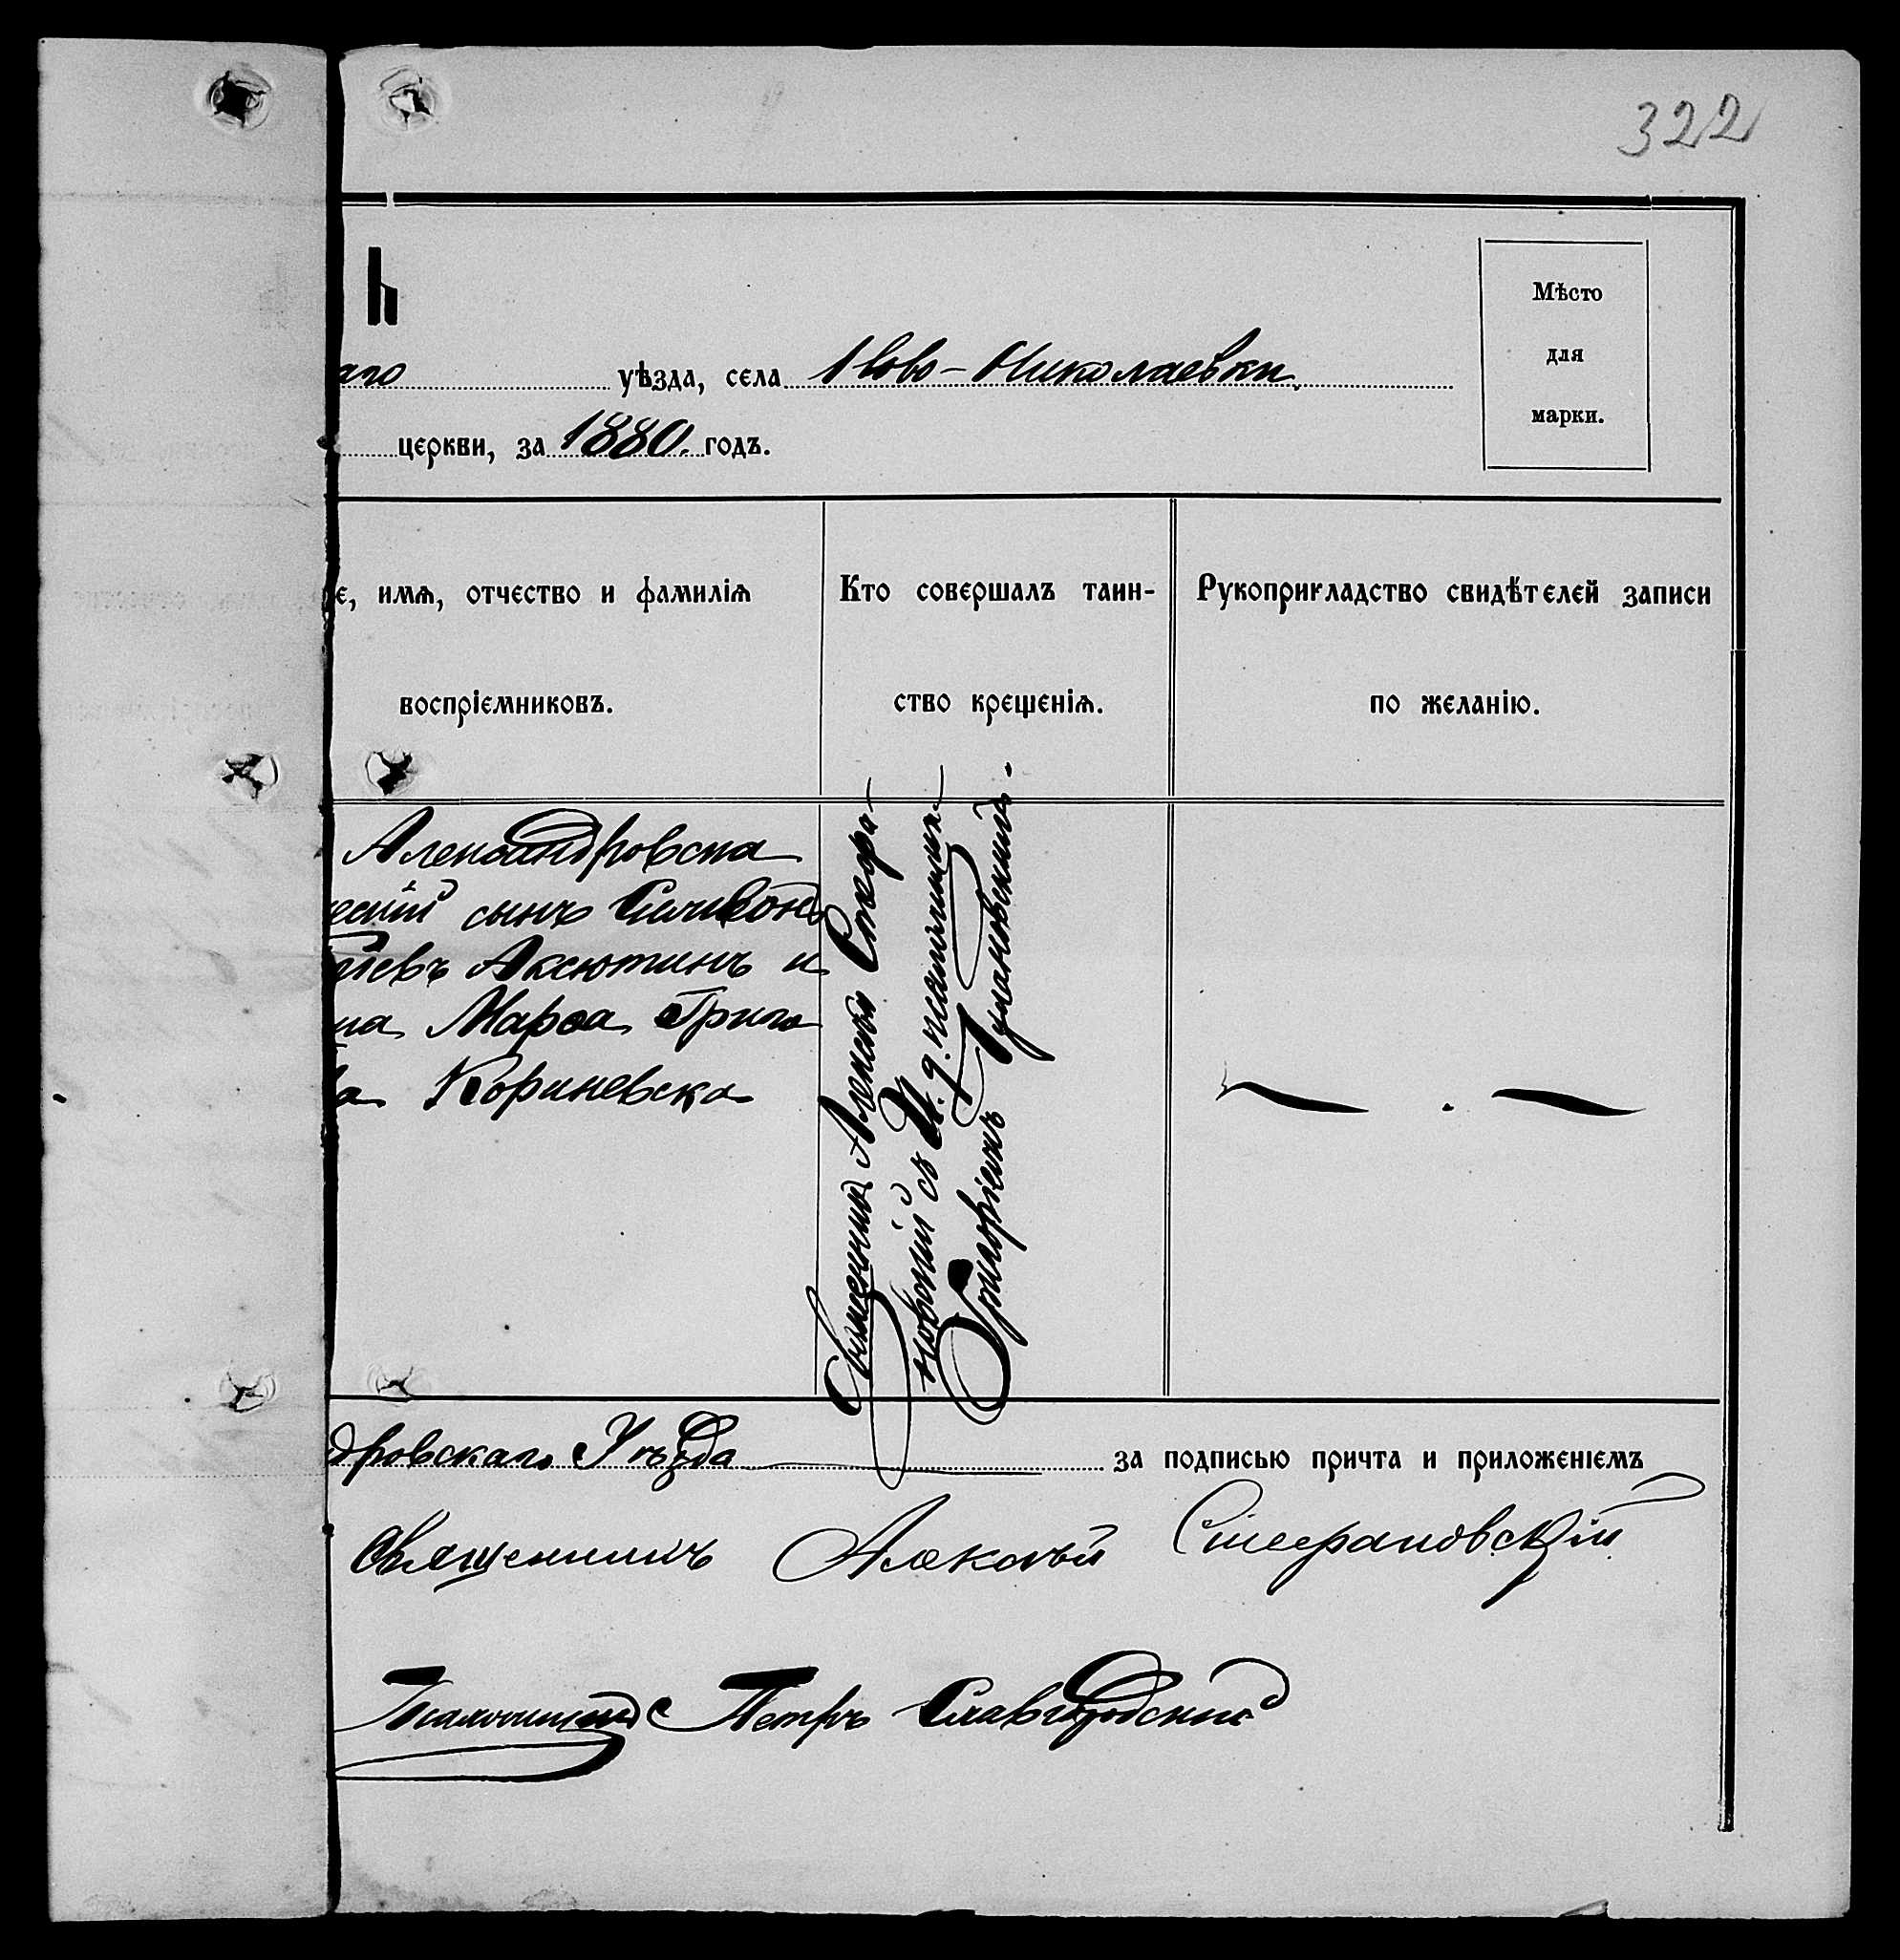 322
ь
аго уѣзда, села Ново-Николаевки
церкви, за 1880. годъ.
Мѣсто
для
марки.
е, имя, отчество и фамилія
воспріемниковъ.
Кто совершалъ таин-
ство крещенія.
Рукоприкладство свидѣтелей записи
по желанію.
Александровска
ескій сынъ
евъ Аксютинъ и
на Марѳа Григо
ва Кориневска
Священникъ Алексѣй Стефа-
новскій съ И. д. псаломщика
Григоріемъ
дровскаго Уѣзда за подписью причта и приложеніемъ
Священникъ Алексѣй Стефановскій
Псаломщикъ Петръ Славгородскій